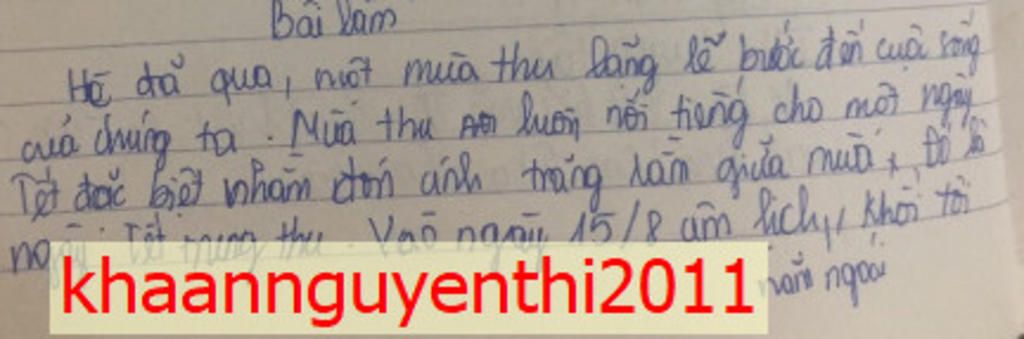 Bài làm
Hè đã qua, một mùa thu lẵng lẽ bước đến cuộc sống
của chúng ta. Mùa thu luôn nổi tiếng cho một ngày
Tết đặc biệt nhằm đón ánh trăng rằm giữa mùa, Đó là
ngày Tết trung thu. Vào ngày 15/8 âm lịch, khối tôi
năm ngoái
khaannguyenthi2011